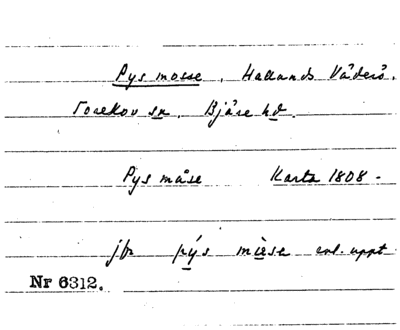 Pys mosse. Hallands Väderö.
Torekov sn. Bjäre hd.
Pys måse Karta 1808 -
jfr pýs mòsse enl. uppt.
Nr 6312.